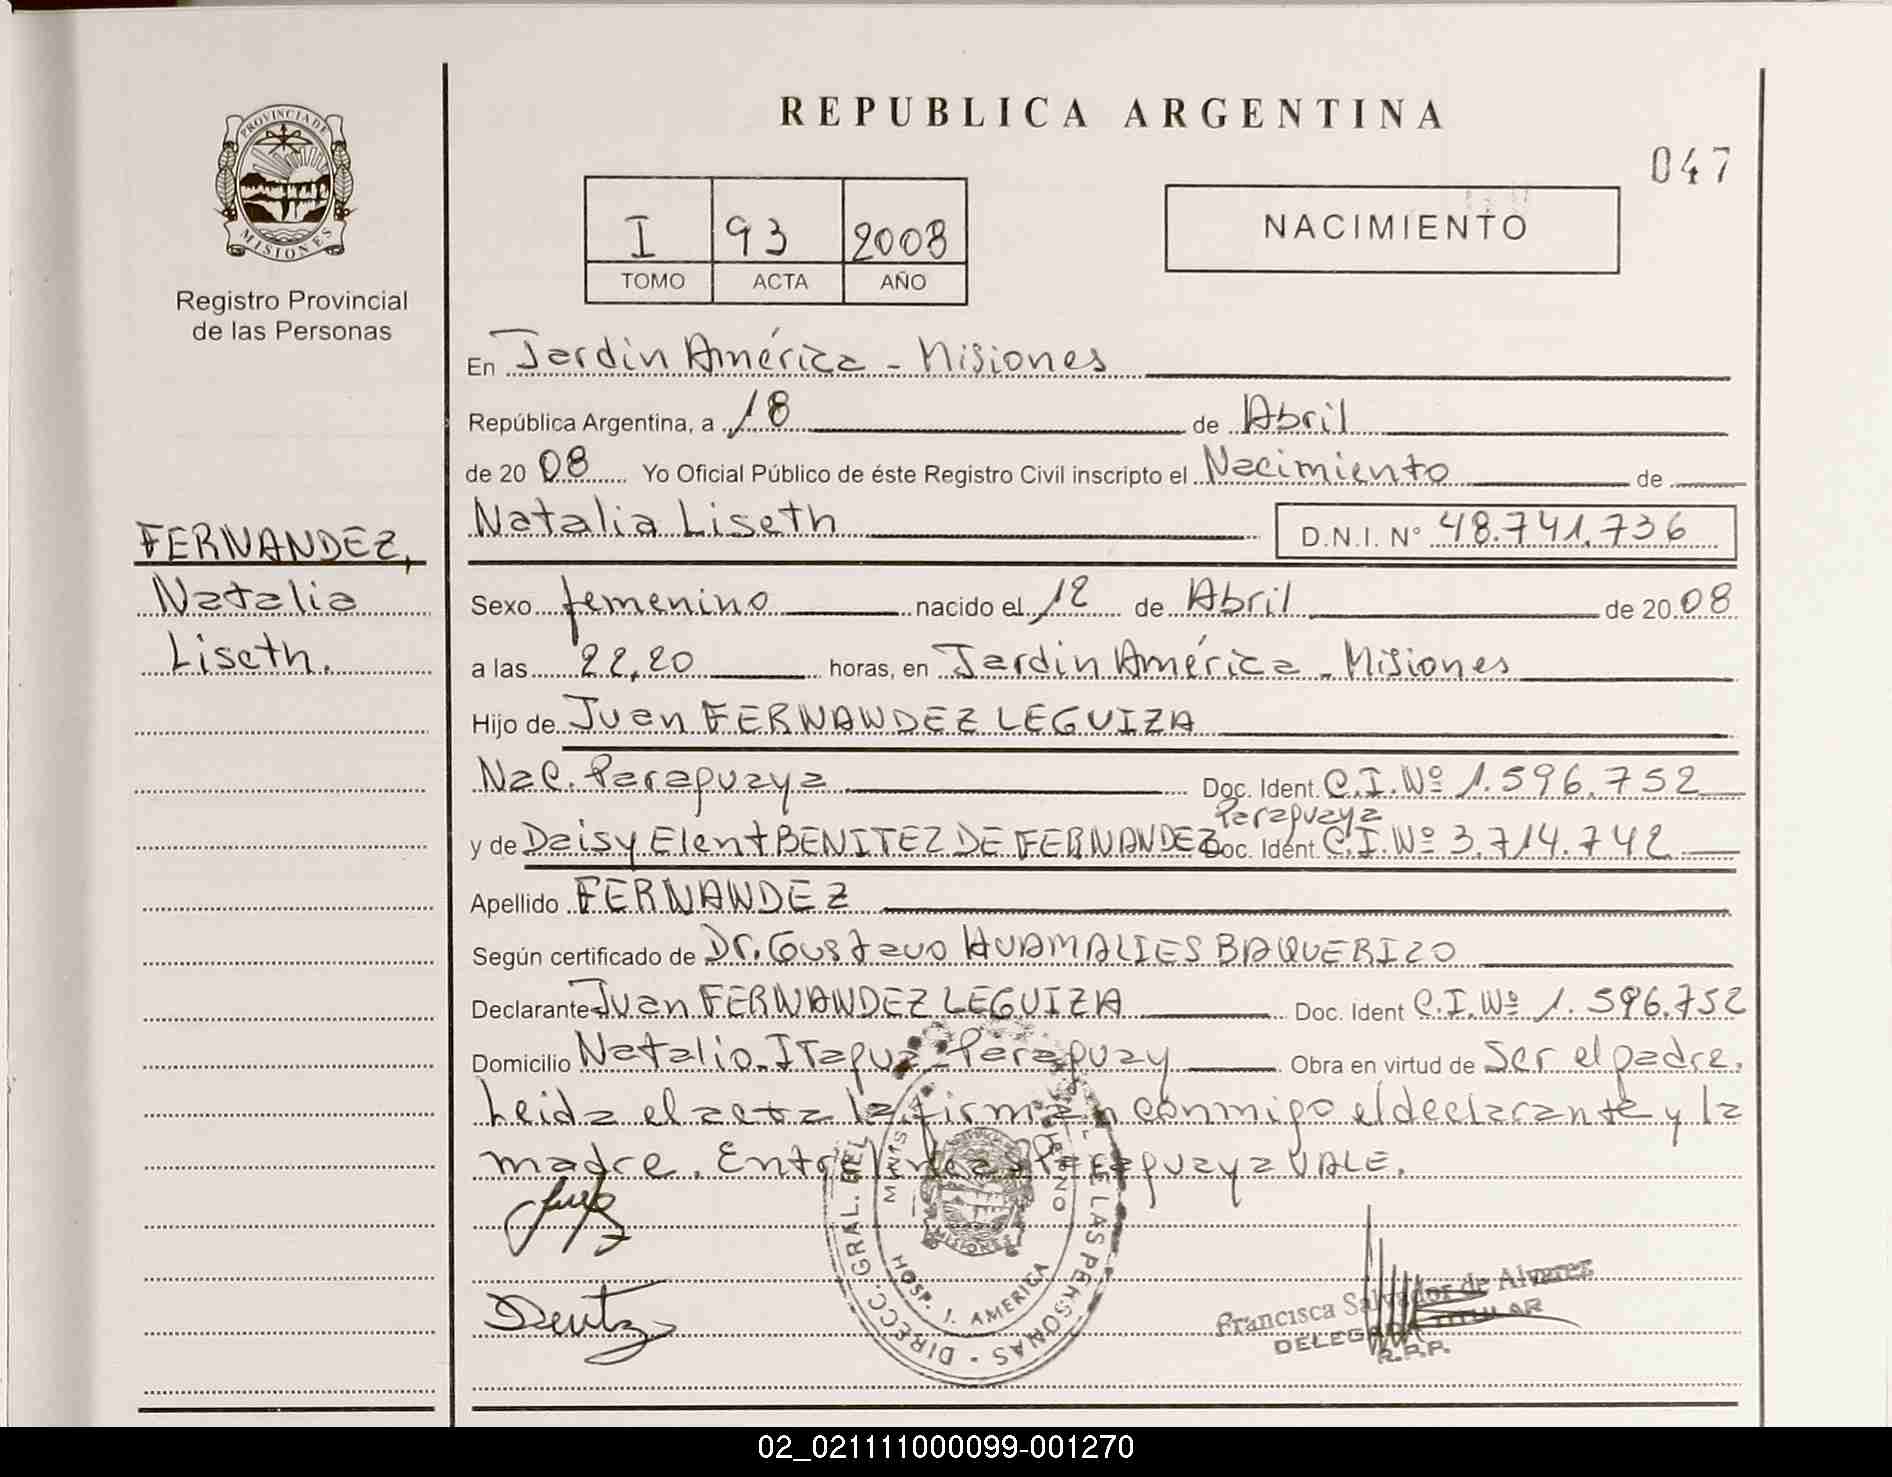 REPUBLICA ARGENTINA
047
PROVINCIA DE
MISIONES
Registro Provincial
de las Personas
I 93 2008
TOMO ACTA AÑO
NACIMIENTO
En Jardin América - Misiones
República Argentina, a 18 de Abril
de 20 08 Yo Oficial Público de éste Registro Civil inscripto el Nacimiento de
Natalia Liseth D.N.I. N° 48.741.736
FERNANDEZ,
Natalia
Liseth.
Sexo femenino nacido el 12 de Abril de 20 08
a las 22,20 horas, en Jardin América - Misiones
Hijo de Juan FERNANDEZ LEGUIZA
Nac. Paraguaya Doc. Ident. C.I. Nº 1.596.752
Paraguaya
y de Deisy Elent BENITEZ DE FERNANDEZ Doc. Ident. C.I. Nº 3.714.742
Apellido FERNANDEZ
Según certificado de Dr. Gustavo HUAMALIES BAQUERIZO
Declarante Juan FERNANDEZ LEGUIZA Doc. Ident C.I. Nº 1.596.752
Domicilio Natalio - Itapua - Paraguay Obra en virtud de Ser el padre.
Leida el acta la firman conmigo el declarante y la
madre. Entre Paraguaya VALE.
DIRECC. GRAL. DEL DE LAS PERSONAS
HOSP. J. AMERICA
MISIONES
Francisca Salvador de Alvarez
DELEGADA TITULAR
R.P.P.
02_021111000099-001270